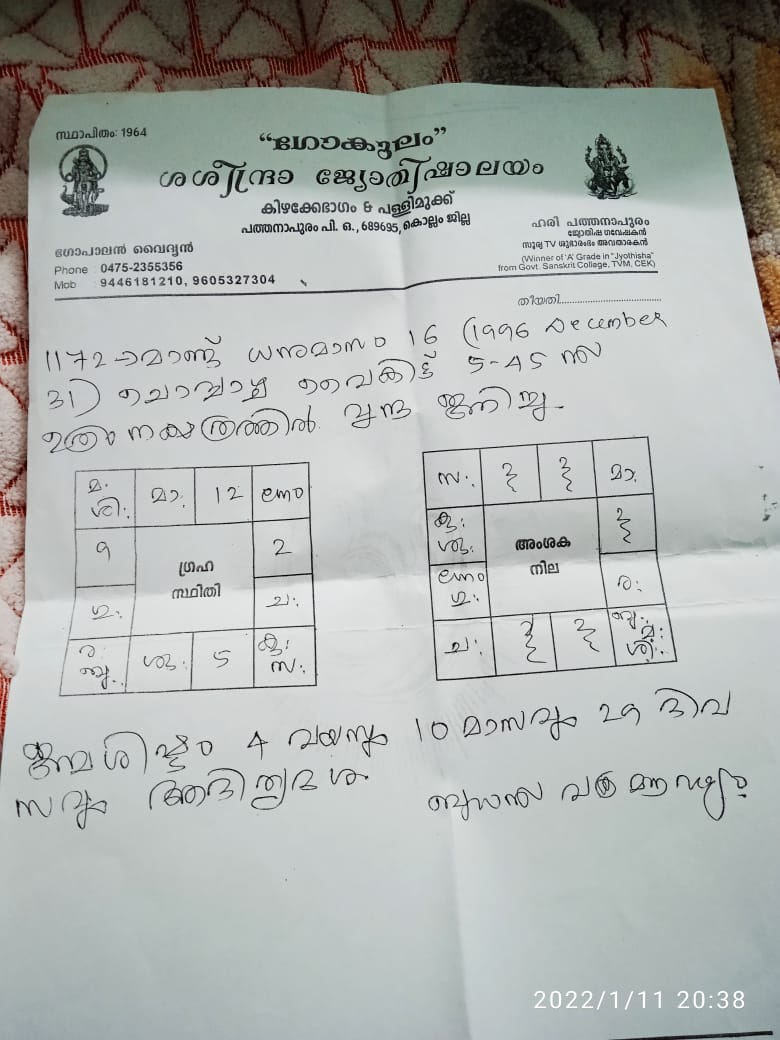 സ്ഥാപിതം: 1964
“ഗോകുലം”
ശശീന്ദ്രാ ജ്യോതിഷാലയം
കിഴക്കേഭാഗം & പള്ളിമുക്ക്
പത്തനാപുരം പി. ഒ., 689695, കൊല്ലം ജില്ല
ഗോപാലൻ വൈദ്യൻ
Phone 0475-2355356
Mob 9446181210, 9605327304
ഹരി പത്തനാപുരം
ജ്യോതിഷ ഗവേഷകൻ
സൂര്യ TV ശുഭാരംഭം അവതാരകൻ
(Winner of 'A' Grade in "Jyothisha"
from Govt. Sanskrit College, TVM, CEK)
തീയതി
1172 ാമാണ്ട് ധനുമാസം 16 (1996 December
31) ചൊവ്വാഴ്ച വൈകിട്ട് 5-45 ന്
ഉത്രം നക്ഷത്രത്തിൽ ജനിച്ചു
മ: ശി: മാ: 12 ലഗ്നം
9 2
ഗ്രഹ
സ്ഥിതി
ഗു: ച:
ര ബു: ശു: 5 കു: സ:
സ: മാ:
കു: ശു:
അംശക
നില
ലഗ്നം ഗു: ര:
ച: ബു: മ: ശി:
ജന്മശിഷ്ടം 4 വയസും 10 മാസവും 29 ദിവ
സവും ആദിത്യദശ